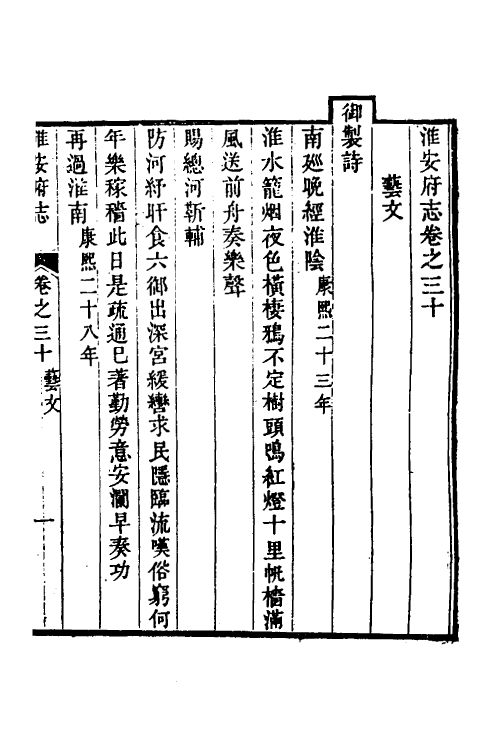 淮安府志卷之三十
藝文
御製詩
南廵晚經淮陰康熙二十三年
淮水籠烟夜色橫棲鴉不定樹頭鳴紅燈十里帆檣滿
風送前舟奏樂聲
賜總河靳輔
防河紓旰食六御出深宮緩轡求民隱臨流嘆俗窮何
年樂稼穡此日是疏通已著勤勞意安瀾早奏功
再過淮南康熙二十八年
淮安府志 卷之三十 藝文 一